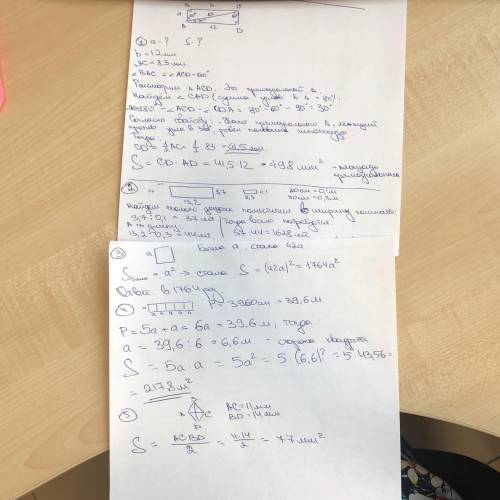 B b C
a
A 12 D
① a-? S-?
b = 12 мм
AC = 83 мм
∠BAC = ∠ACD = 60°
Рассмотрим △ACD. Это прямоугольный △.
Найдем ∠CAD (сумма углов в △ = 180°).
180° - ∠ACD - ∠CDA = 180° - 60° - 90° = 30°
Согласно свойству: катет прямоугольного △, лежащий
против угла в 30°, равен половине гипотенузы
Тогда
CD = 1/2 AC = 1/2 · 83 = 41,5 мм
S = CD · AD = 41,5 · 12 = 498 мм² - площадь
прямоугольника
② 3,7 0,1 10 см = 0,1 м
13,2 0,3 30 см = 0,3 м
Найдем сколько дощечек поместится в ширину комнаты:
3,7 : 0,1 = 37 шт Тогда всего потребуется
А в длину:
13,2 : 0,3 = 44 шт 37 · 44 = 1628 шт
③ a Была a, стала 42a
S = a² → стало S = (42a)² = 1764a²
Ответ: в 1764 раз
④ P = 3960 см = 39,6 м
a a a a a
P = 5a + a = 6a = 39,6 м, тогда:
a = 39,6 : 6 = 6,6 м - сторона квадрата
S = 5a · a = 5a² = 5 · (6,6)² = 5 · 43,56 =
= 217,8 м²
⑤ A C D AC = 11 мм
BD = 14 мм
S = AC·BD/2 = 11·14/2 = 77 мм²